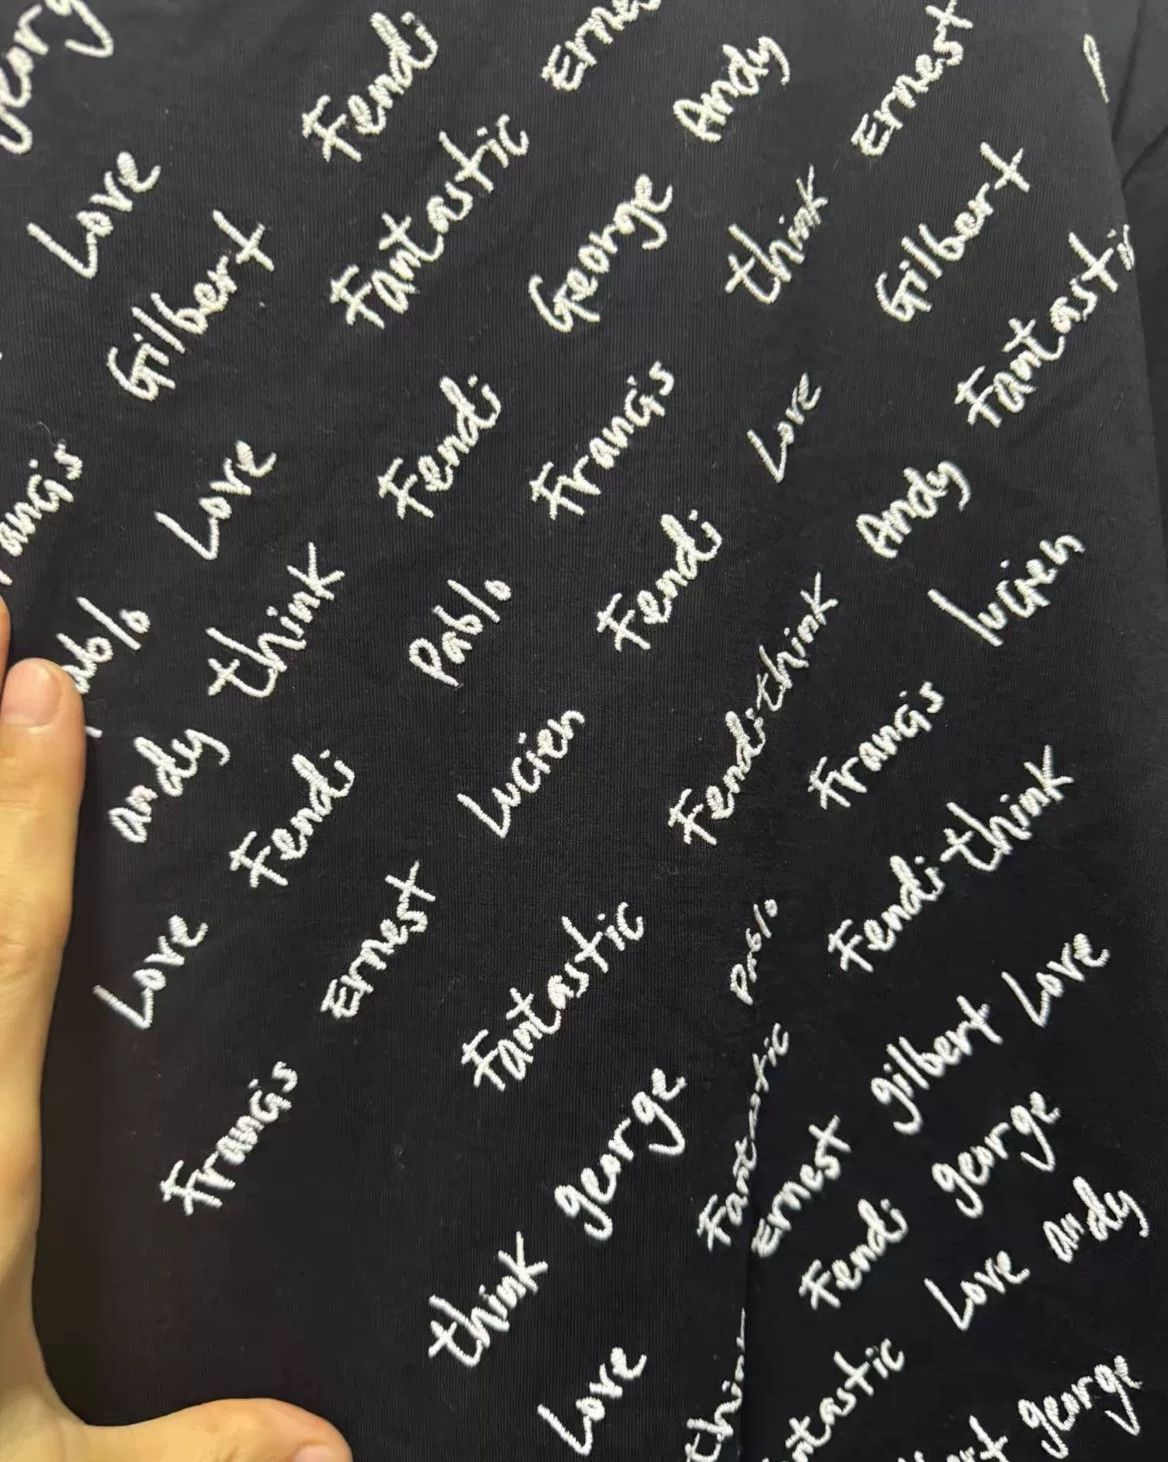 Fendi
Andy
Ernest
Love
Fantastic
George
think
Gilbert
Gilbert
Love
Fendi
Francis
Love
Andy
think
Pablo
Fendi
Lucien
andy
Fendi
Lucien
Fendi think
Francis
Love
Ernest
Fantastic
Pablo
Fendi think
Francis
george
Fantastic
Ernest
gilbert Love
think
Fendi
george
Love
Love andy
george